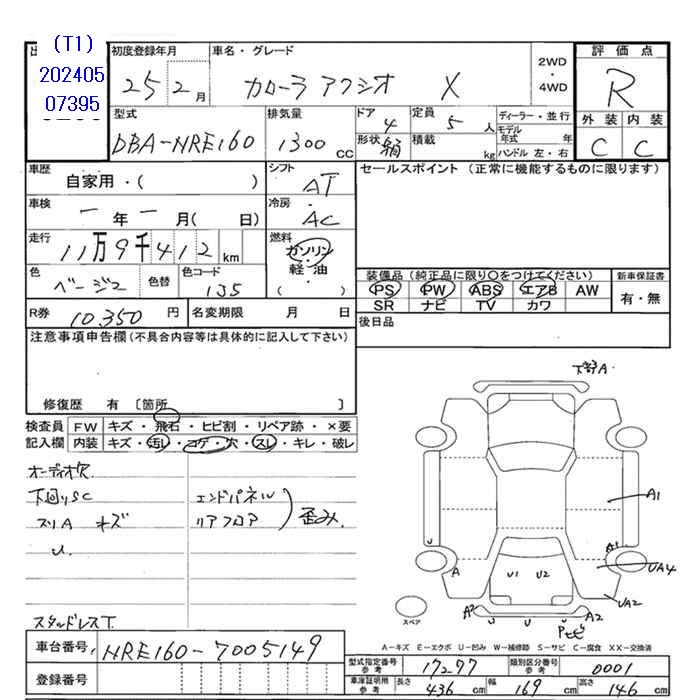 (T1)
202405
07395
初度登録年月 車名・グレード 2WD ・ 4WD 評価点
25 2月 カローラ アクシオ X R
型式 排気量 ドア 定員 ディーラー・並行 外装 内装
DBA-NRE160 1300cc 4 5人 モデル年式 年 C C
形状 箱 積載 kg ハンドル 左・右
車歴 自家用・( ) シフト AT セールスポイント (正常に機能するものに限ります)
車検 一年一月( 日) 冷房 AC
走行 11万9千412km 燃料 ガソリン・軽・油 ( )
色 ベージュ 色替 色コード 135
装備品 (純正品に限り○をつけてください) 新車保証書
PS PW ABS エアB AW 有・無
SR ナビ TV カワ
R券 10,350円 名変期限 月 日 後日品
注意事項申告欄(不具合内容等は具体的に記入して下さい)
修復歴 有〔箇所 〕
検査員 FW キズ・飛石・ヒビ割・リペア跡・×要
記入欄 内装 キズ・汚レ・コゲ・穴・スレ・キレ・破レ
オーディオ穴
下回りSC エンドパネル
スリA キズ リアフロア 歪み.
U.
スタッドレスT.
下部A
A1
A1
UA4
UA2
A2
U
U
A
U1 U2
スペア
A-キズ E-エクボ U-凹み W-補修跡 S-サビ C-腐食 XX-交換済
車台番号 NRE160-7005149
登録番号
型式指定番号 参考 17277 類別区分番号 参考 0001
車庫証明用 参考 長さ 436cm 幅 169cm 高さ 146cm